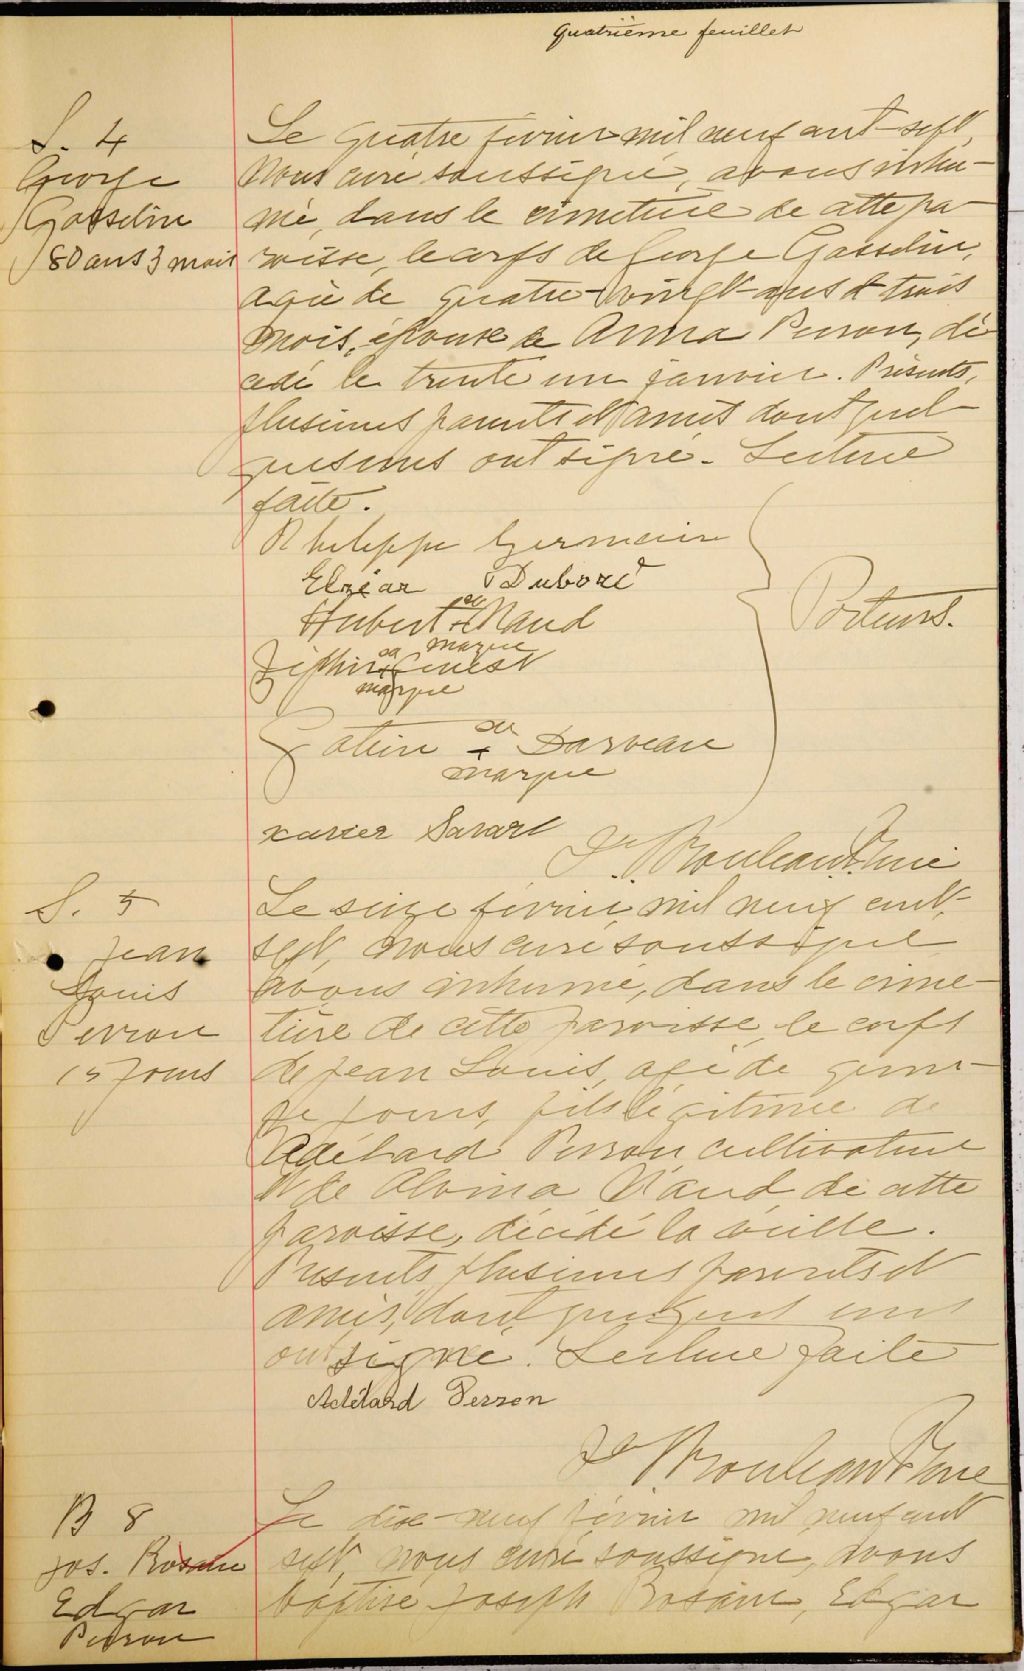 Quatrième feuillet
S. 4
George
Gosselin
80 ans 3 mois
Le quatre février mil neuf cent-sept,
nous curé soussigné, avons inhu-
mé, dans le cimetière de cette pa-
roisse, le corps de George Gosselin,
agé de quatre-vingt-ans et trois
mois, époux de Anna Perron, dé-
cédé le trente un janvier. Présents,
plusieurs parents et amis dont quel-
ques uns ont signé. Lecture
faite.
Philippe Germain
Elzéar Duboré
Hubert sa + Naud
marque
Zéphir sa + Genest
marque
sa + Darveau
marque
Xavier Savard
Porteurs.
Rouleau Ptre curé
S. 5
Jean
Louis
Perron
15 jours
Le seize février mil neuf cent-
sept, nous curé soussigné
avons inhumé, dans le cime-
tière de cette paroisse, le corps
de Jean Louis, agé de quin-
ze jours, fils légitime de
Adélard Perron cultivateur
et de Alvina Naud, de cette
paroisse, décédé la veille.
Présents, plusieurs parents et
amis, dont quelques uns
ont signé. Lecture faite
Adélard Perron
Rouleau Ptre curé
B 8
Jos. Rosaire
Edgar
Perron
Le dix-neuf février mil neuf cent
sept, nous curé soussigné, avons
baptisé Joseph Rosaire, Edgar